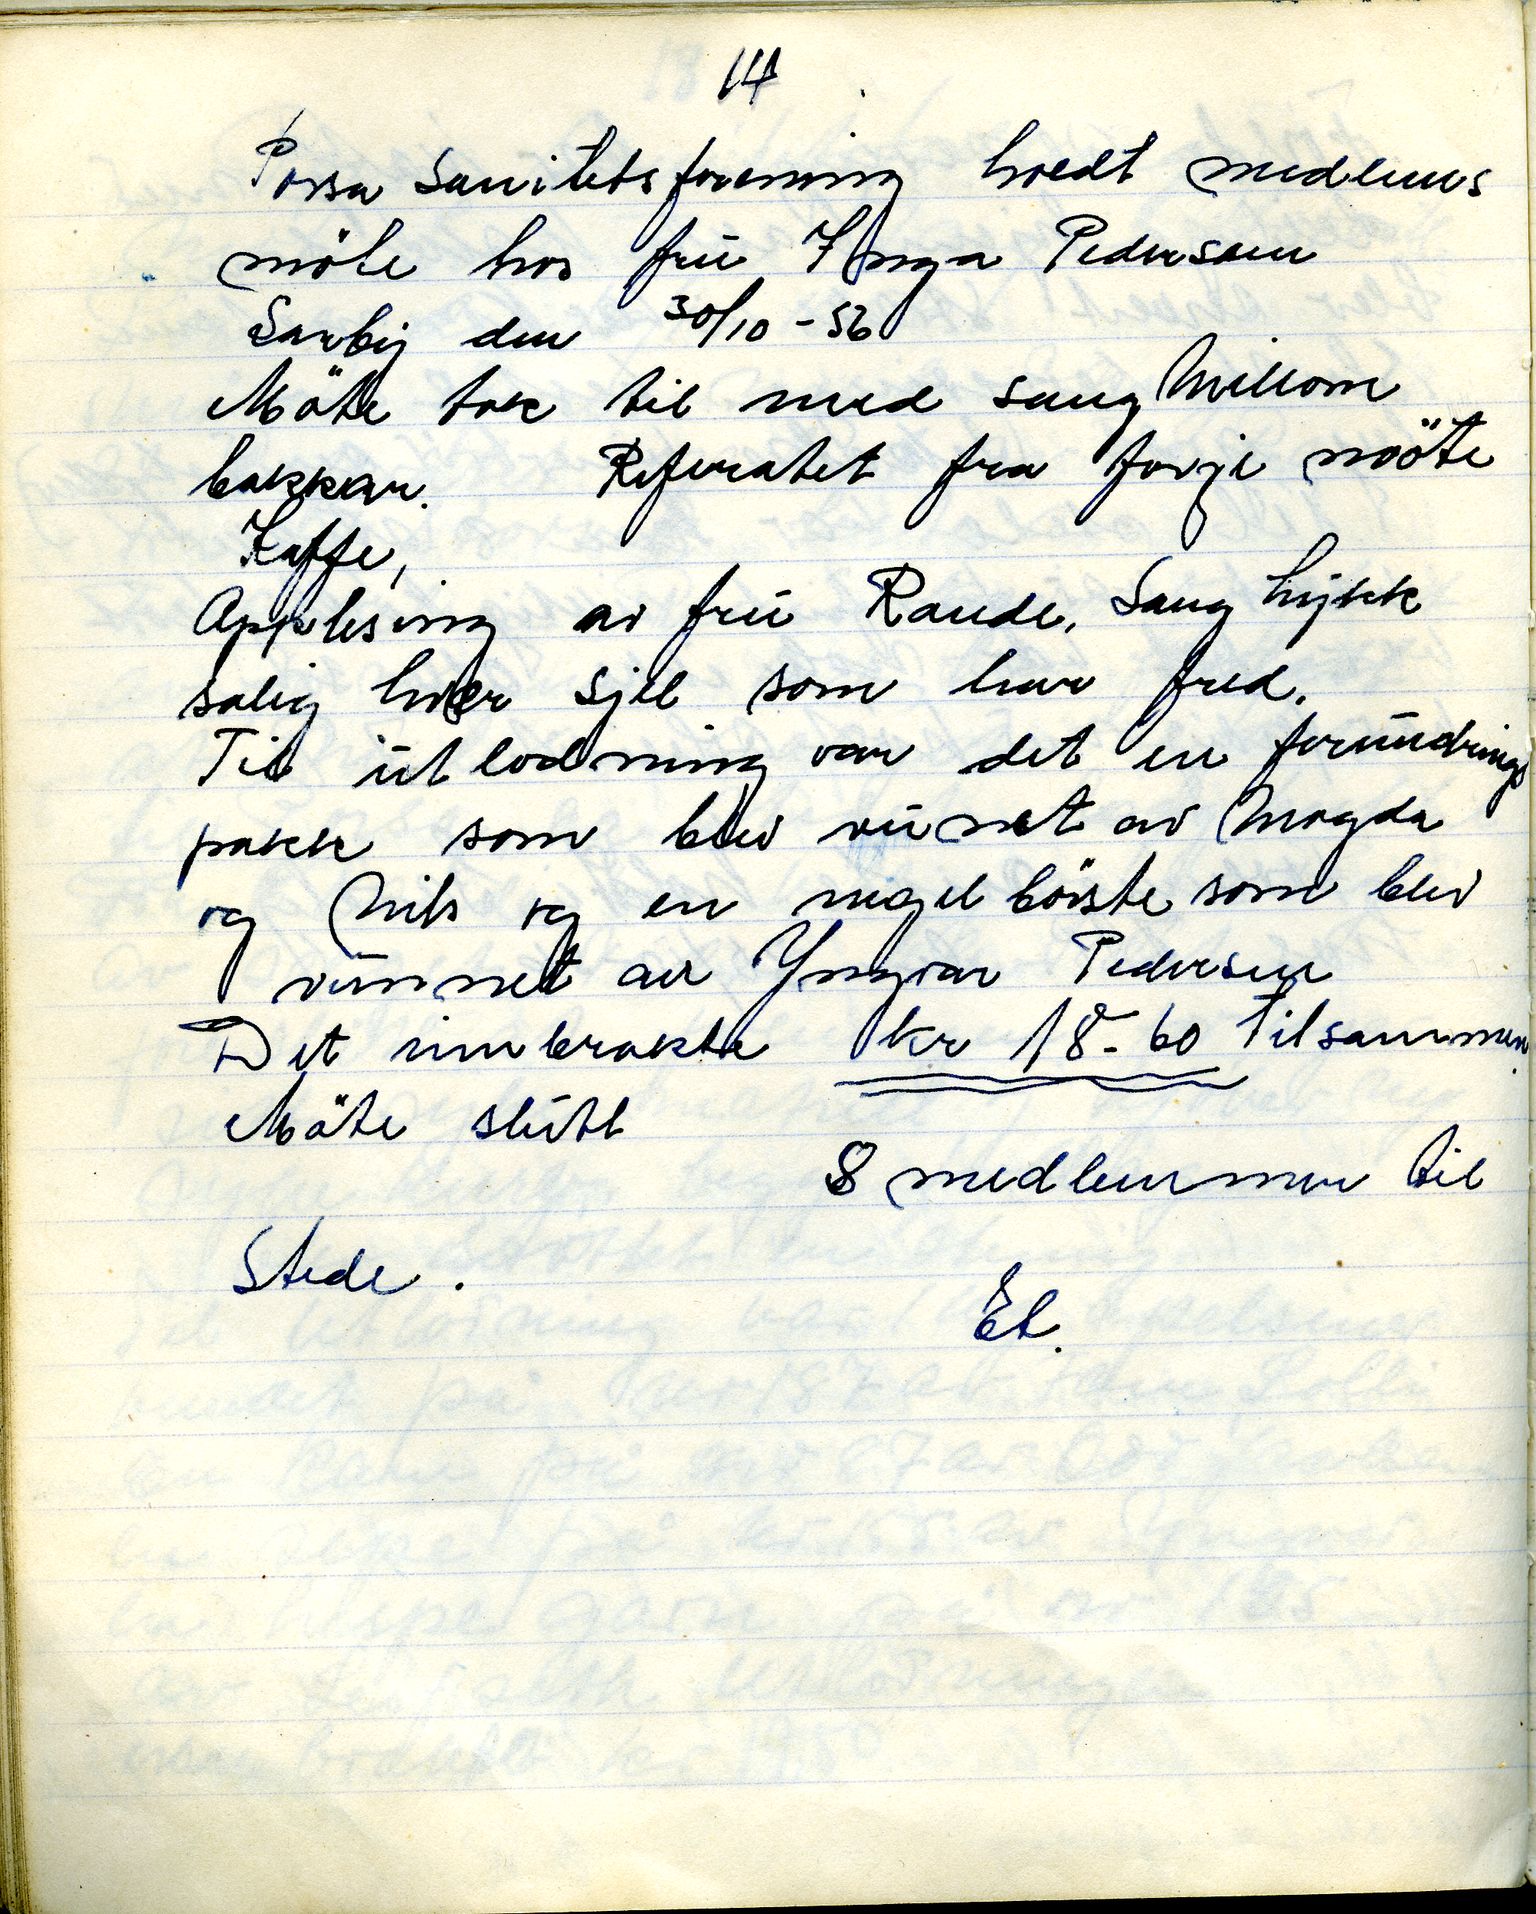 14
Porsa Sanitetsforening holdt medlems
möte hos frü Inga Pedersen
den 30/10-56
Möte tok til med sang Millom
bakkar. Referatet fra forje mööte
Kaffe,
Applesing av frü Rande. Sang Lÿkk
salig hver sjel som har fred.
Til ütlodning var det en foründrings
pakk som blev vünet av Magda
og Nils og en negel börste som blev
vünnet av Yngvar Pedersen
Det innbrakte kr 18-60 Tilsammen.
Möte slütt
8 medlemmer til
Stede.